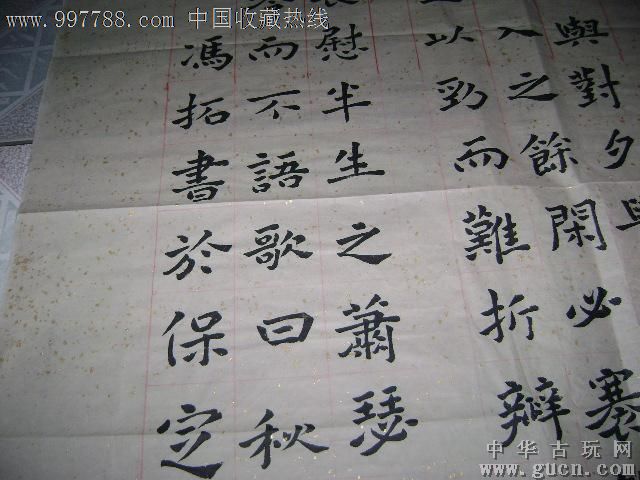 www.997788.com 中国收藏热线
與對夕
入之餘閑必
以勁而難折瓣
慰半生之蕭瑟
而不語歌曰秋
馮拓書於保定
中华古玩网
www.gucn.com